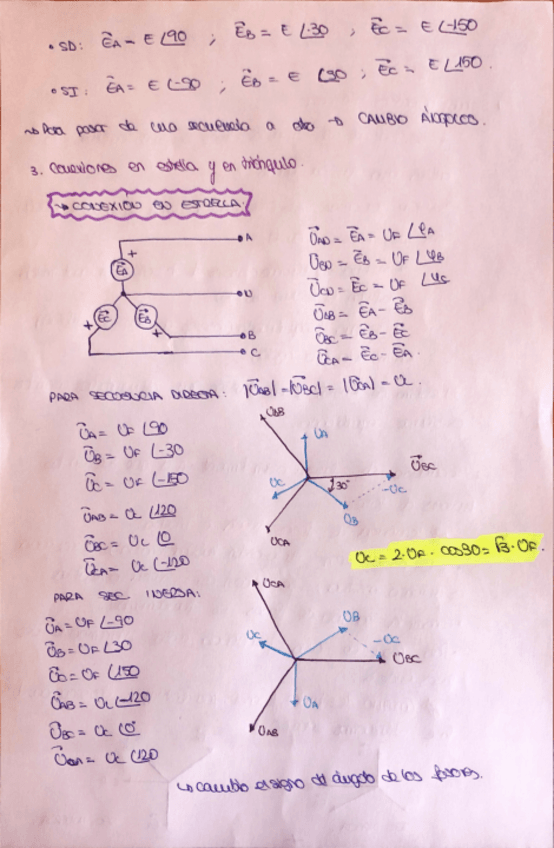 • SD: E⃗A = E ∠90 ; E⃗B = E ∠-30 ; E⃗C = E ∠-150
• SI: E⃗A = E ∠-90 ; E⃗B = E ∠30 ; E⃗C = E ∠150.
↝ Para pasar de una secuencia a otro → CAMBIO ÁNGULOS.
3. Conexiones en estrella y en triángulo.
↝ CONEXIÓN EN ESTRELLA:
A
+
E⃗A
N
E⃗C
E⃗B
+
+
B
C
U⃗AN = E⃗A = UF ∠φA
U⃗BN = E⃗B = UF ∠φB
U⃗CN = E⃗C = UF ∠φC
U⃗AB = E⃗A - E⃗B
U⃗BC = E⃗B - E⃗C
U⃗CA = E⃗C - E⃗A.
PARA SECUENCIA DIRECTA: |U⃗AB| = |U⃗BC| = |U⃗CA| = UL.
U⃗A = UF ∠90
U⃗B = UF ∠-30
U⃗C = UF ∠-150
U⃗AB = UL ∠120
U⃗BC = UL ∠0
U⃗CA = UL ∠-120
UAB
UA
U⃗BC
UC
30°
-UC
UB
UCA
UL = 2·UF·cos30 = √3·UF
PARA SEC INVERSA:
U⃗A = UF ∠-90
U⃗B = UF ∠30
U⃗C = UF ∠150
U⃗AB = UL ∠-120
U⃗BC = UL ∠0°
U⃗CA = UL ∠120
UCA
UB
UC
-UC
UBC
UA
UAB
↳ cambio el signo del ángulo de los fasores.